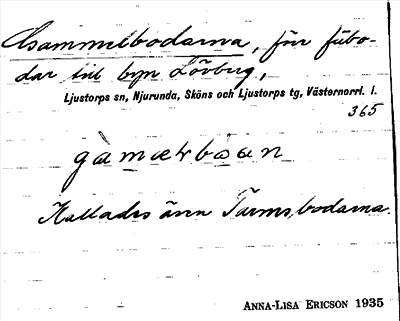 Gammelbodarna, för fäbo-
dar till byn Lövberg,
Ljustorps sn, Njurunda, Sköns och Ljustorps tg, Västernorrl. l.
365
gàmælbòan
Kallades även Tarmsbodarna.
ANNA-LISA ERICSON 1935